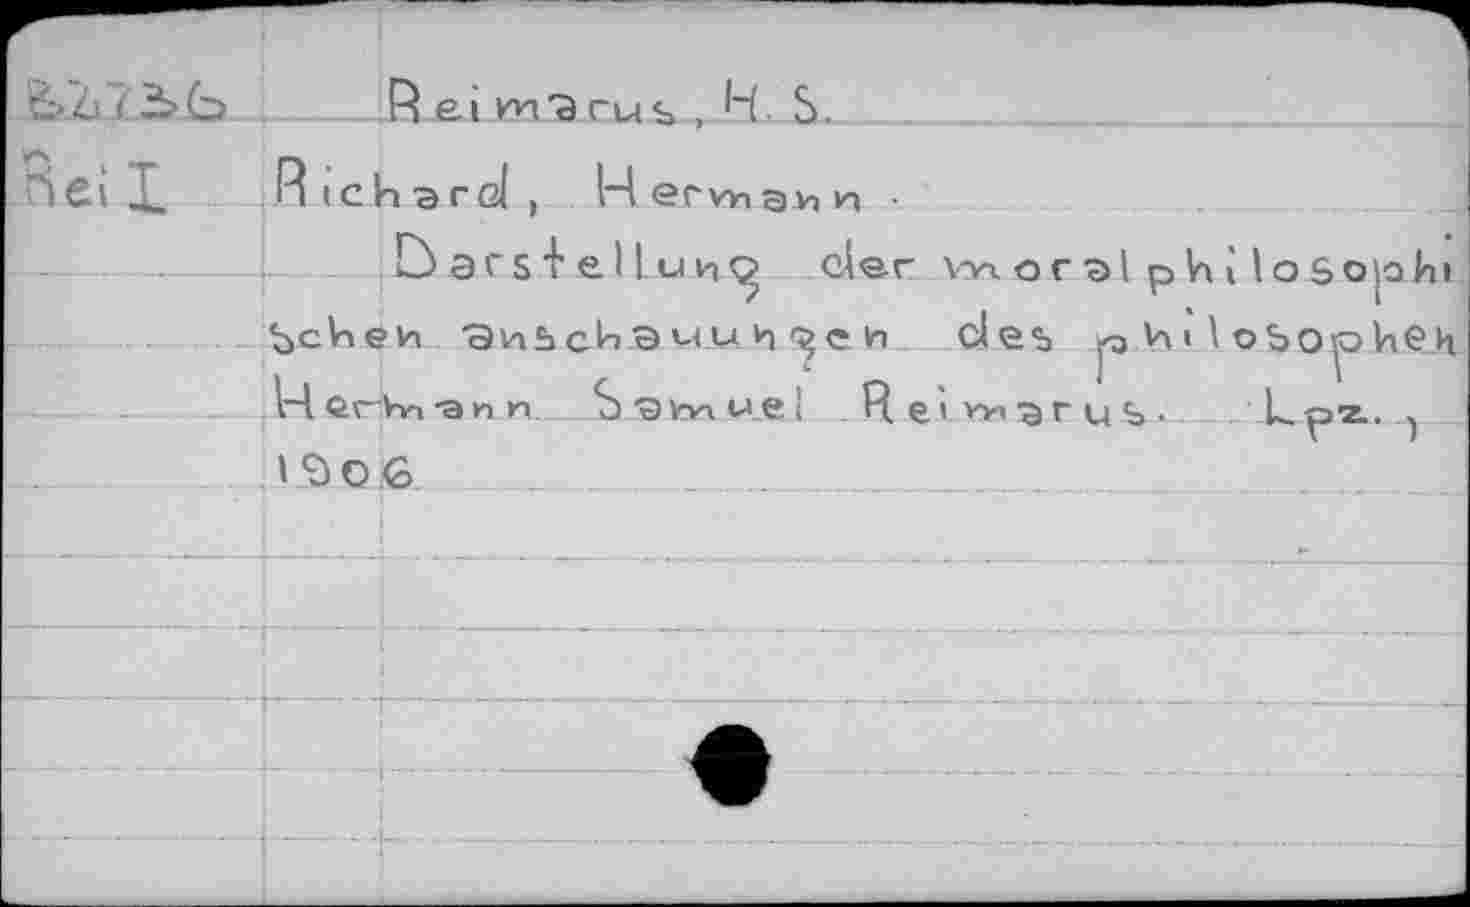 Reimarus, H. S.
Rei I
Richard, Hermann.
Darstellung der moralphilosophi
schen anschauungen des philosophen
Hermann Samuel Reimarus. Lpz.,
1906